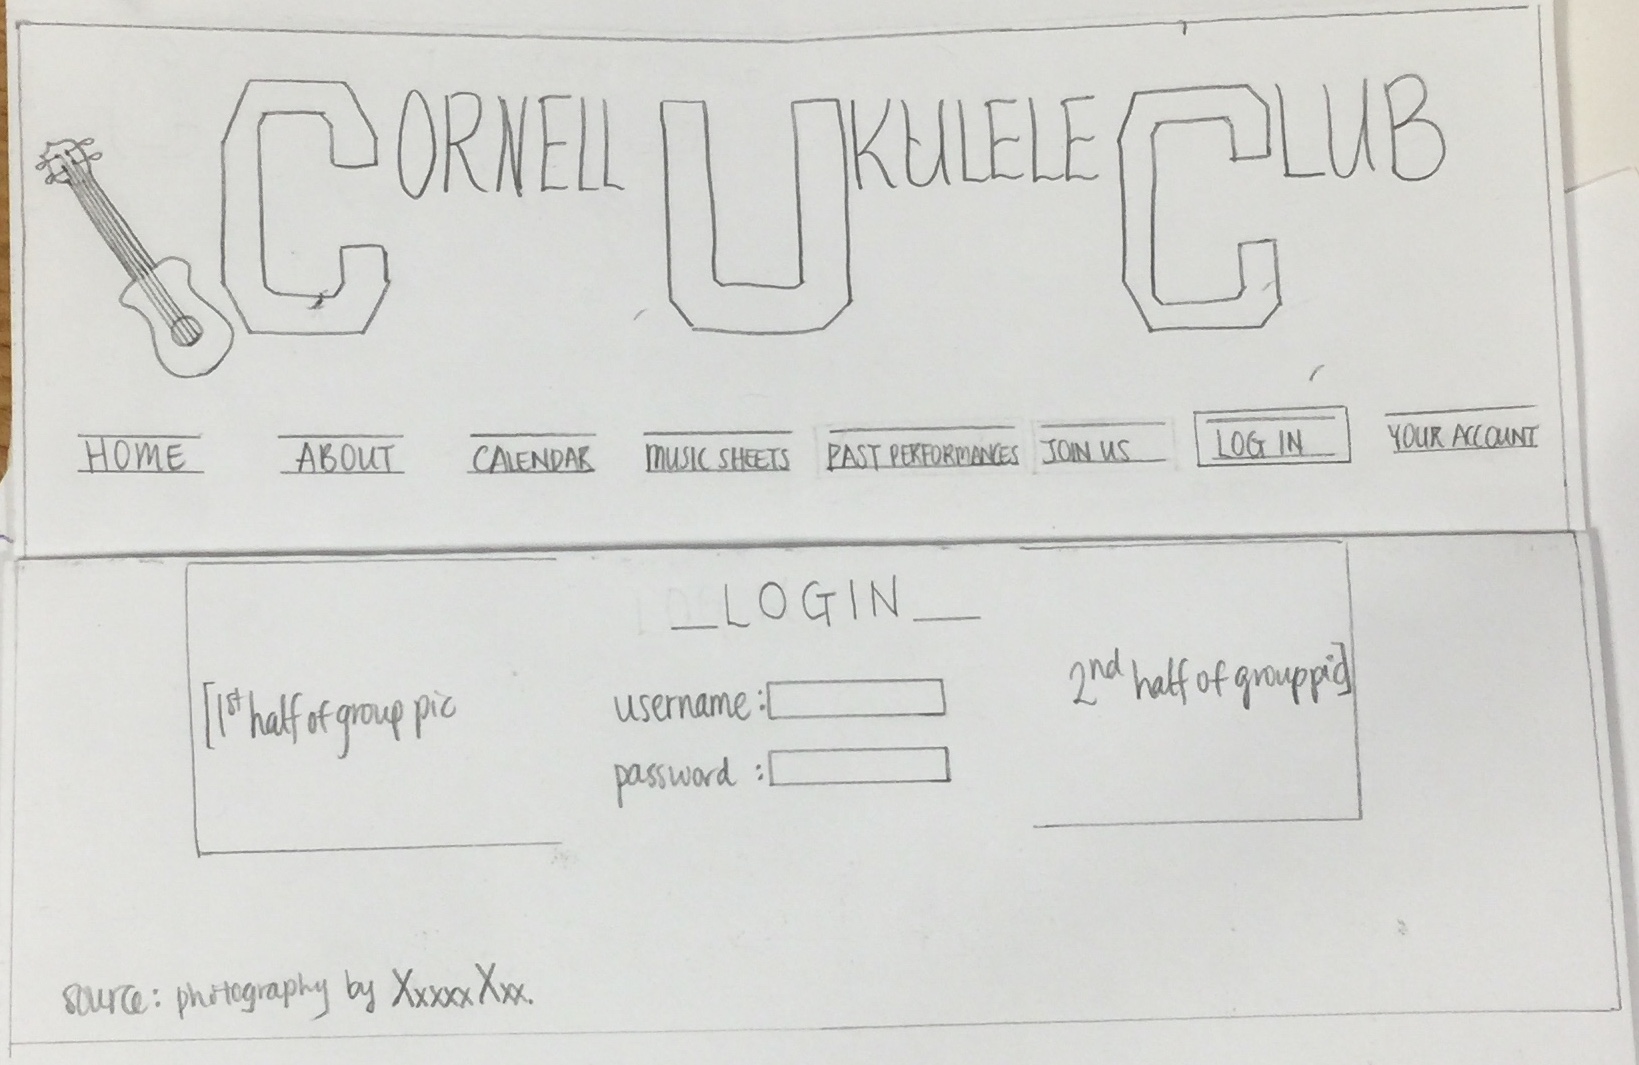 CORNELL UKULELE CLUB
HOME ABOUT CALENDAR MUSIC SHEETS PAST PERFORMANCES JOIN US LOG IN YOUR ACCOUNT
LOGIN
[1st half of group pic
2nd half of group pic]
username:
password :
source: photography by Xxxxx Xxx.